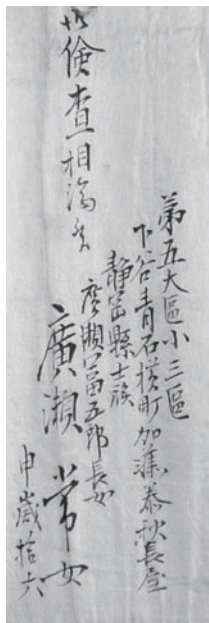 第五大區小三區
下谷青石横町加藤泰秋長屋
静岡縣士族
廣瀬冨五郎長女
廣瀬常女
申歳拾六
検査相済